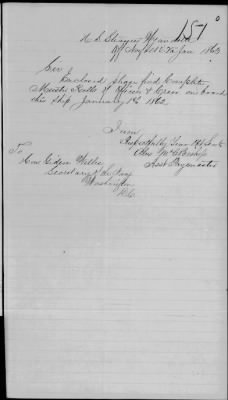 157
U.S. Steamer Meandith
Off New Port Va Jan 1863
Sir
Enclosed please find Complete
Muster Rolls of Officers & Crew on board
this Ship January 1st 1863.
I am
Respectfully Your Obt Servt
Asst Paymaster
To
Hon Gideon Welles
Secretary of the Navy
Washington
D.C.